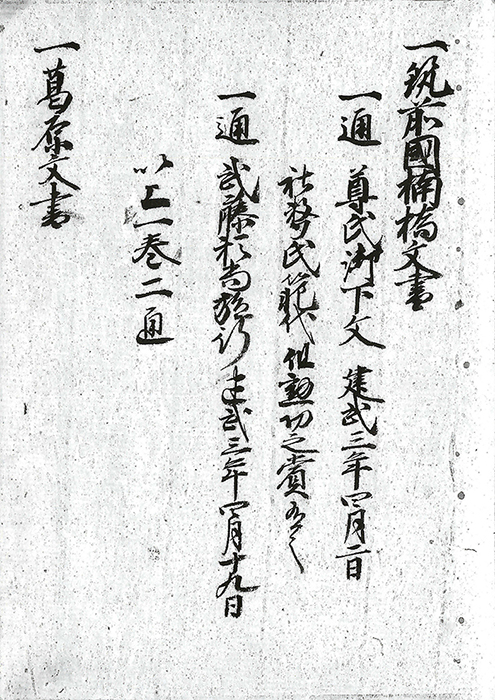 一筑前國楠橋文書
一通 尊氏御下文 建武三年四月二日
社務氏範代 勲功之賞
一通 武藤 尚 建武三年四月十九日
以上一巻二通
一葛原文書